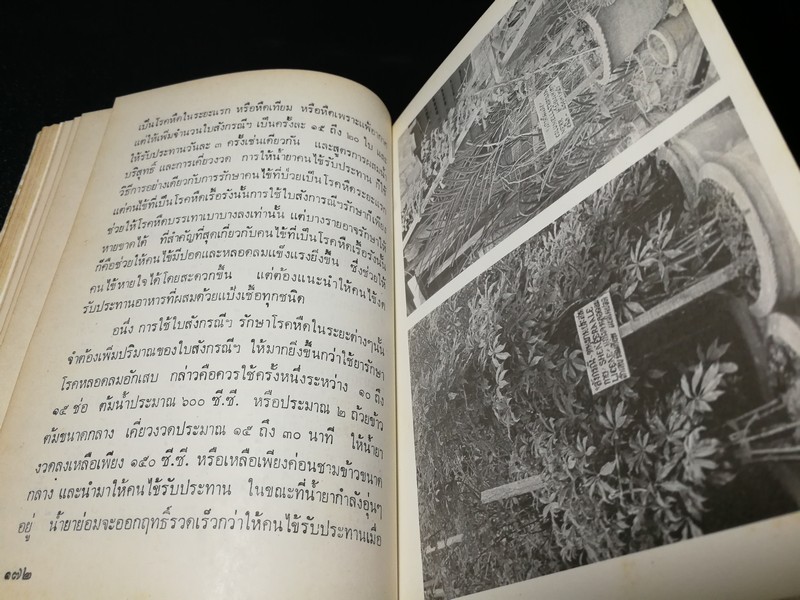 เป็นโรคหืดในระยะแรก หรือหืดเทียม หรือหืดเพราะแพ้อากาศ
แต่ให้เพิ่มจำนวนใบสังกรณีฯ เป็นครั้งละ ๑๕ ถึง ๒๐ ใบ และ
ให้รับประทานวันละ ๓ ครั้งเช่นเดียวกัน และสูตรการผสมน้ำ
บริสุทธิ์ และการเคี่ยวงวด การให้น้ำยาคนไข้รับประทาน ก็ใช้
วิธีการอย่างเดียวกับการรักษาคนไข้ที่ป่วยเป็นโรคหืดระยะแรก
แต่คนไข้ที่เป็นโรคหืดเรื้อรังนั้นการใช้ใบสังกรณีฯรักษาก็เพียง
ช่วยให้โรคหืดบรรเทาเบาบางลงเท่านั้น แต่บางรายอาจรักษาให้
หายขาดได้ ที่สำคัญที่สุดเกี่ยวกับคนไข้ที่เป็นโรคหืดเรื้อรังนั้น
ก็คือช่วยให้คนไข้มีปอดและหลอดลมแข็งแรงยิ่งขึ้น ซึ่งช่วยให้
คนไข้หายใจได้โดยสะดวกขึ้น แต่ต้องแนะนำให้คนไข้งด
รับประทานอาหารที่ผสมด้วยแป้งเชื้อทุกชนิด
อนึ่ง การใช้ใบสังกรณีฯ รักษาโรคหืดในระยะต่างๆนั้น
จำต้องเพิ่มปริมาณของใบสังกรณีฯ ให้มากยิ่งขึ้นกว่าใช้ยารักษา
โรคหลอดลมอักเสบ กล่าวคือควรใช้ครั้งหนึ่งระหว่าง ๑๐ ถึง
๑๕ ช่อ ต้มน้ำประมาณ ๖๐๐ ซี.ซี. หรือประมาณ ๒ ถ้วยข้าว
ต้มขนาดกลาง เคี่ยวงวดประมาณ ๑๕ ถึง ๓๐ นาที ให้น้ำยา
งวดลงเหลือเพียง ๑๕๐ ซี.ซี. หรือเหลือเพียงค่อนชามข้าวขนาด
กลาง และนำมาให้คนไข้รับประทาน ในขณะที่น้ำยากำลังอุ่นๆ
อยู่ น้ำยาย่อมจะออกฤทธิ์รวดเร็วกว่าให้คนไข้รับประทานเมื่อ
๑๗๒